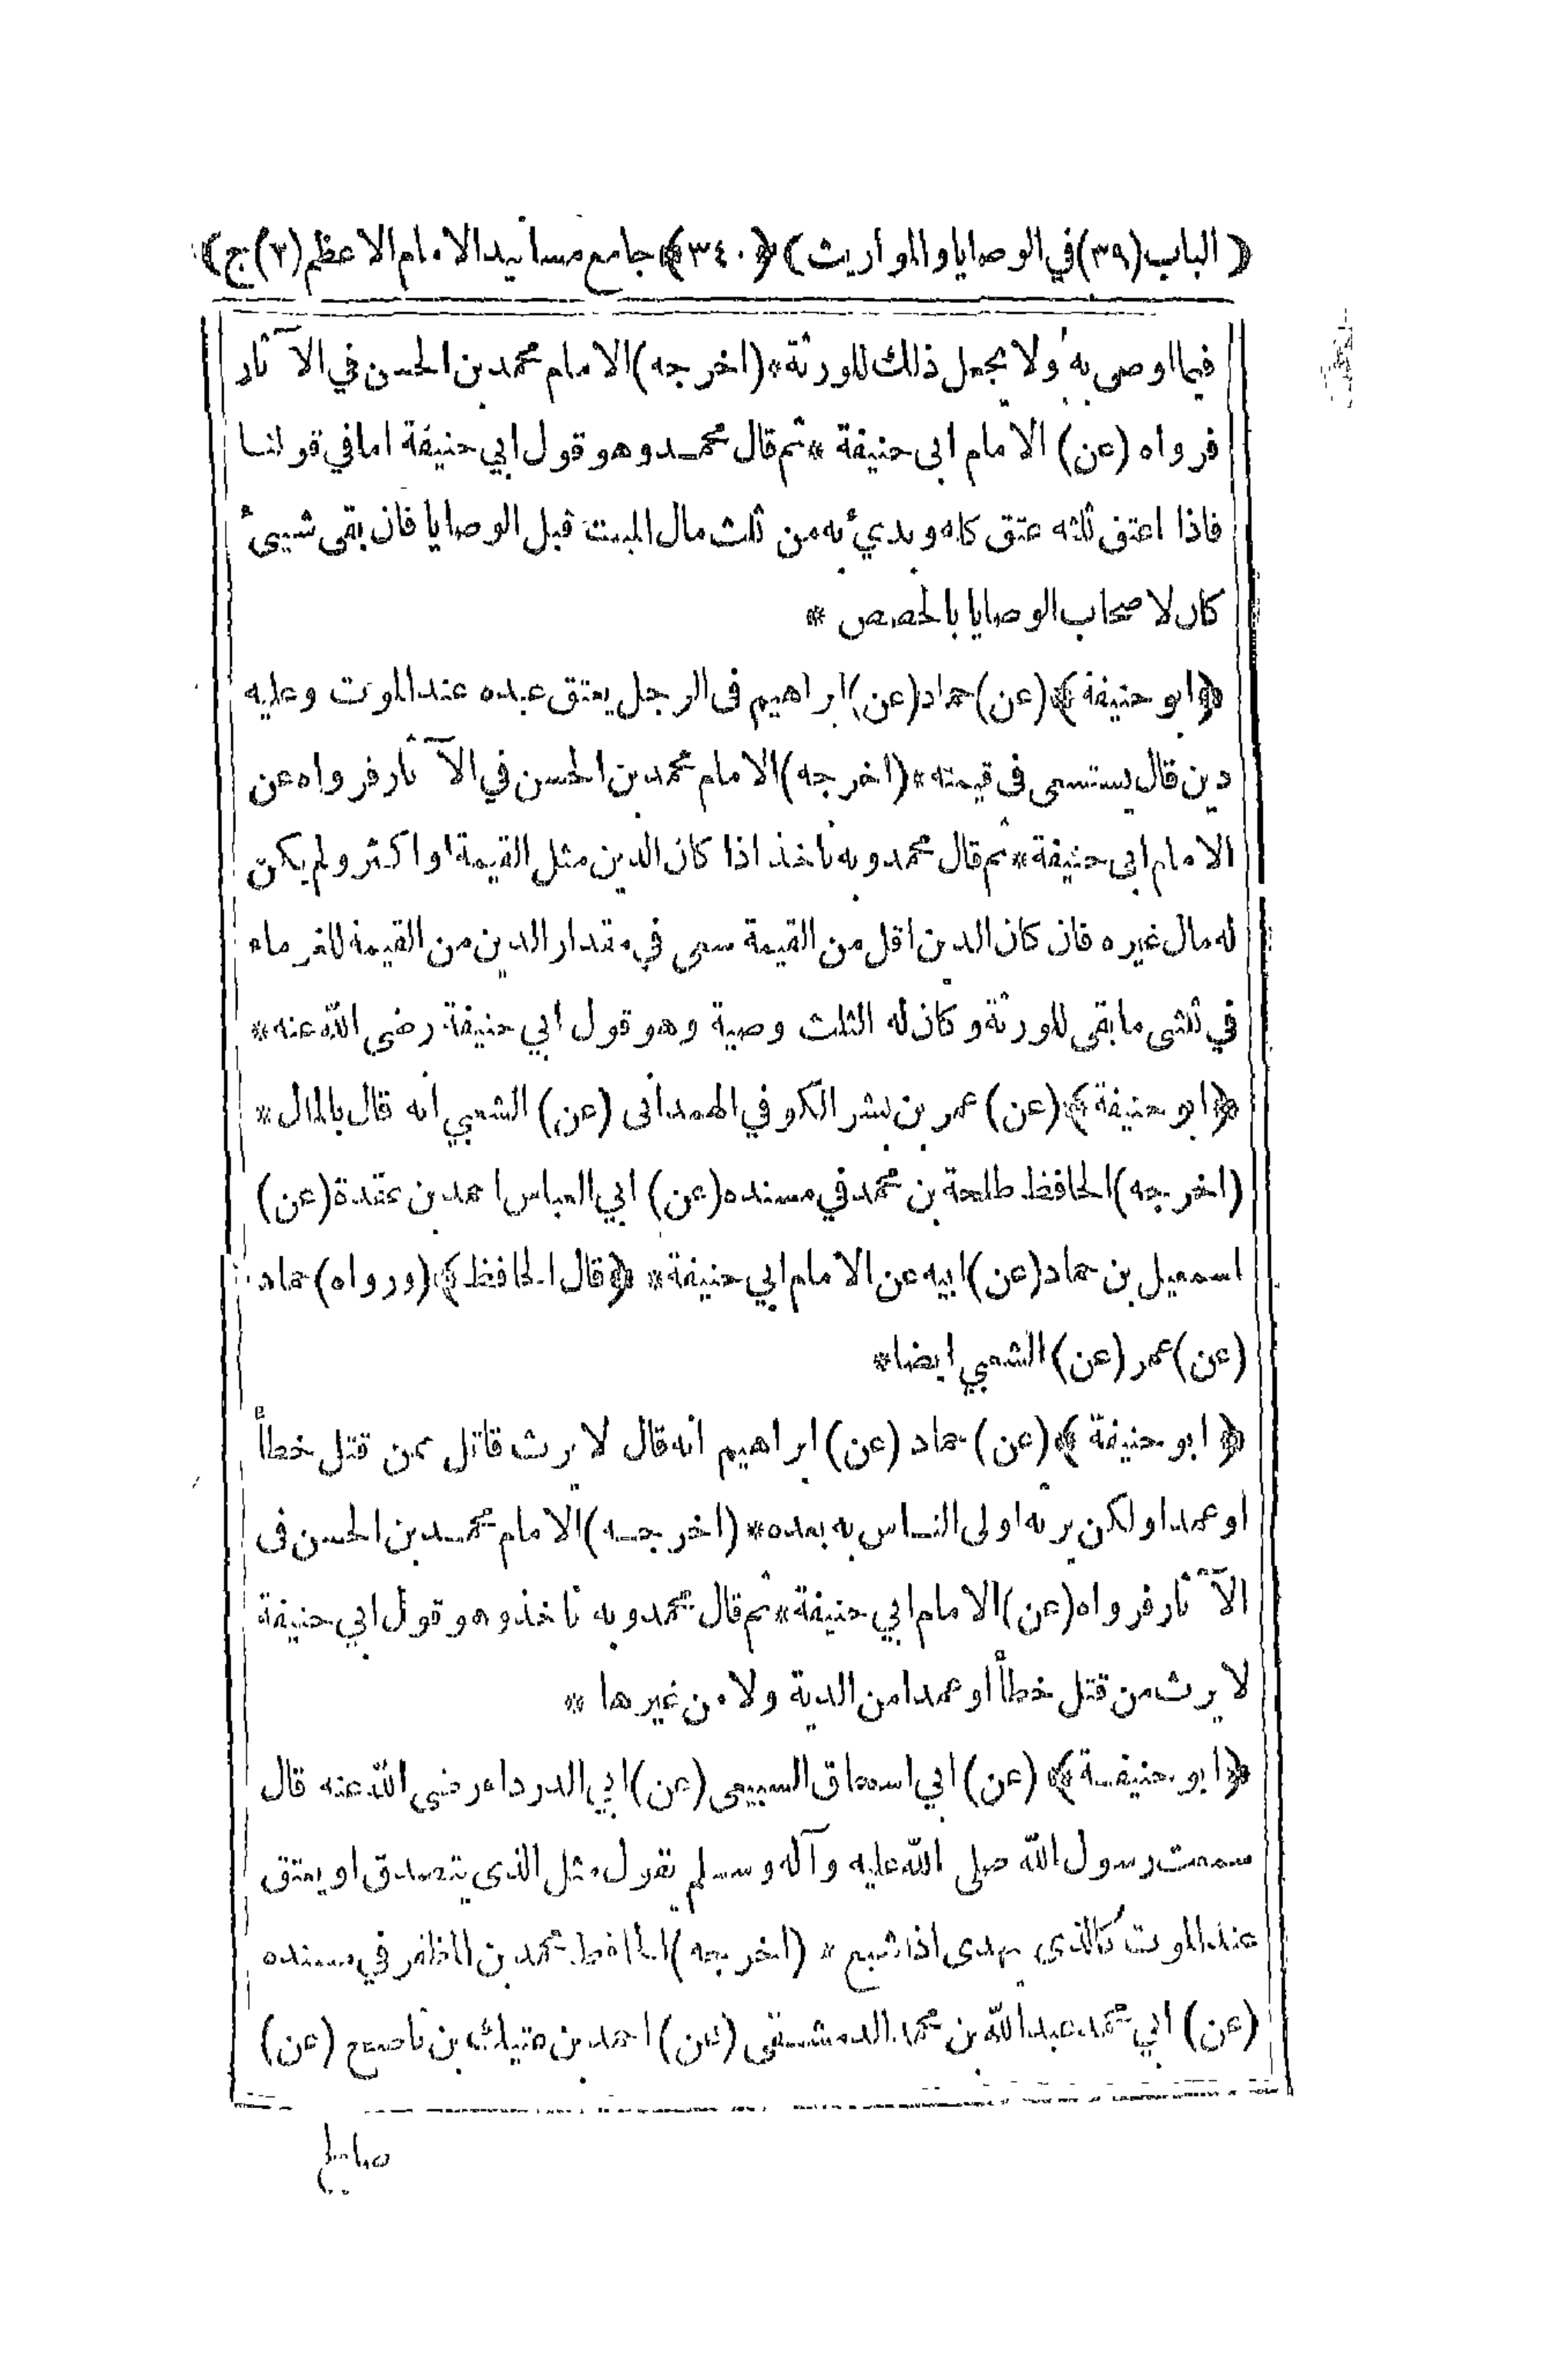 ﴿ الباب(٣٩)في الوصايا والمواريث﴾ ﴿٣٤٠﴾ جامع مسانيد الامام الاعظم(٢)ج﴾
فيما اوصى به ولا يجعل ذلك للورثة*(اخرجه)الامام محمد بن الحسن في الآثار
فرواه (عن) الامام ابى حنيفة *ثم قال محمد وهو قول ابي حنيفة امافي قولنا
فاذا اعتق ثلثه عتق كله وبدئ به من ثلث مال الميت قبل الوصايا فان بقى شيئ
كان لاصحاب الوصايا بالحصص *
﴿ابو حنيفة﴾(عن)حماد(عن)ابراهيم فى الرجل يعتق عبده عند الموت وعليه
دين قال يستسعى فى قيمته*(اخرجه)الامام محمد بن الحسن في الآثار فرواه عن
الامام ابى حنيفة*ثم قال محمد وبه ناخذ اذا كان الدين مثل القيمة او اكثر ولم يكن
له مال غيره فان كان الدين اقل من القيمة سعى في مقدار الدين من القيمة للغرماء
في ثلثى ما بقى للورثة وكان له الثلث وصية وهو قول ابي حنيفة رضى الله عنه*
﴿ابو حنيفة﴾(عن)عمر بن بشر الكوفي الهمدانى (عن) الشعبي انه قال بالمال*
(اخرجه)الحافظ طلحة بن محمد في مسنده(عن) ابي العباس احمد بن عقدة(عن)
اسمعيل بن حماد(عن)ابيه عن الامام ابي حنيفة* ﴿قال الحافظ﴾(ورواه)حماد
(عن)عمر(عن)الشعبي ايضا*
﴿ ابو حنيفة ﴾(عن) حماد (عن)ابراهيم انه قال لا يرث قاتل ممن قتل خطأً
او عمدا ولكن يرثه اولى الناس به بعده*(اخرجه)الامام محمد بن الحسن فى
الآثار فرواه(عن)الامام ابي حنيفة*ثم قال محمد وبه ناخذ وهو قول ابي حنيفة
لا يرث من قتل خطأً او عمدا من الدية ولا من غيرها *
﴿ابو حنيفة﴾ (عن)ابي اسحاق السبيعى(عن)ابي الدرداء رضى الله عنه قال
سمعت رسول الله صلى الله عليه وآله وسلم يقول مثل الذى يتصدق او يعتق
عند الموت كالذي يهدى اذا شبع * (اخرجه)الحافظ محمد بن المظفر في مسنده
(عن) ابي محمد عبدالله بن محمد الدمشقى(عن)احمد بن عتيك بن ناصح (عن)